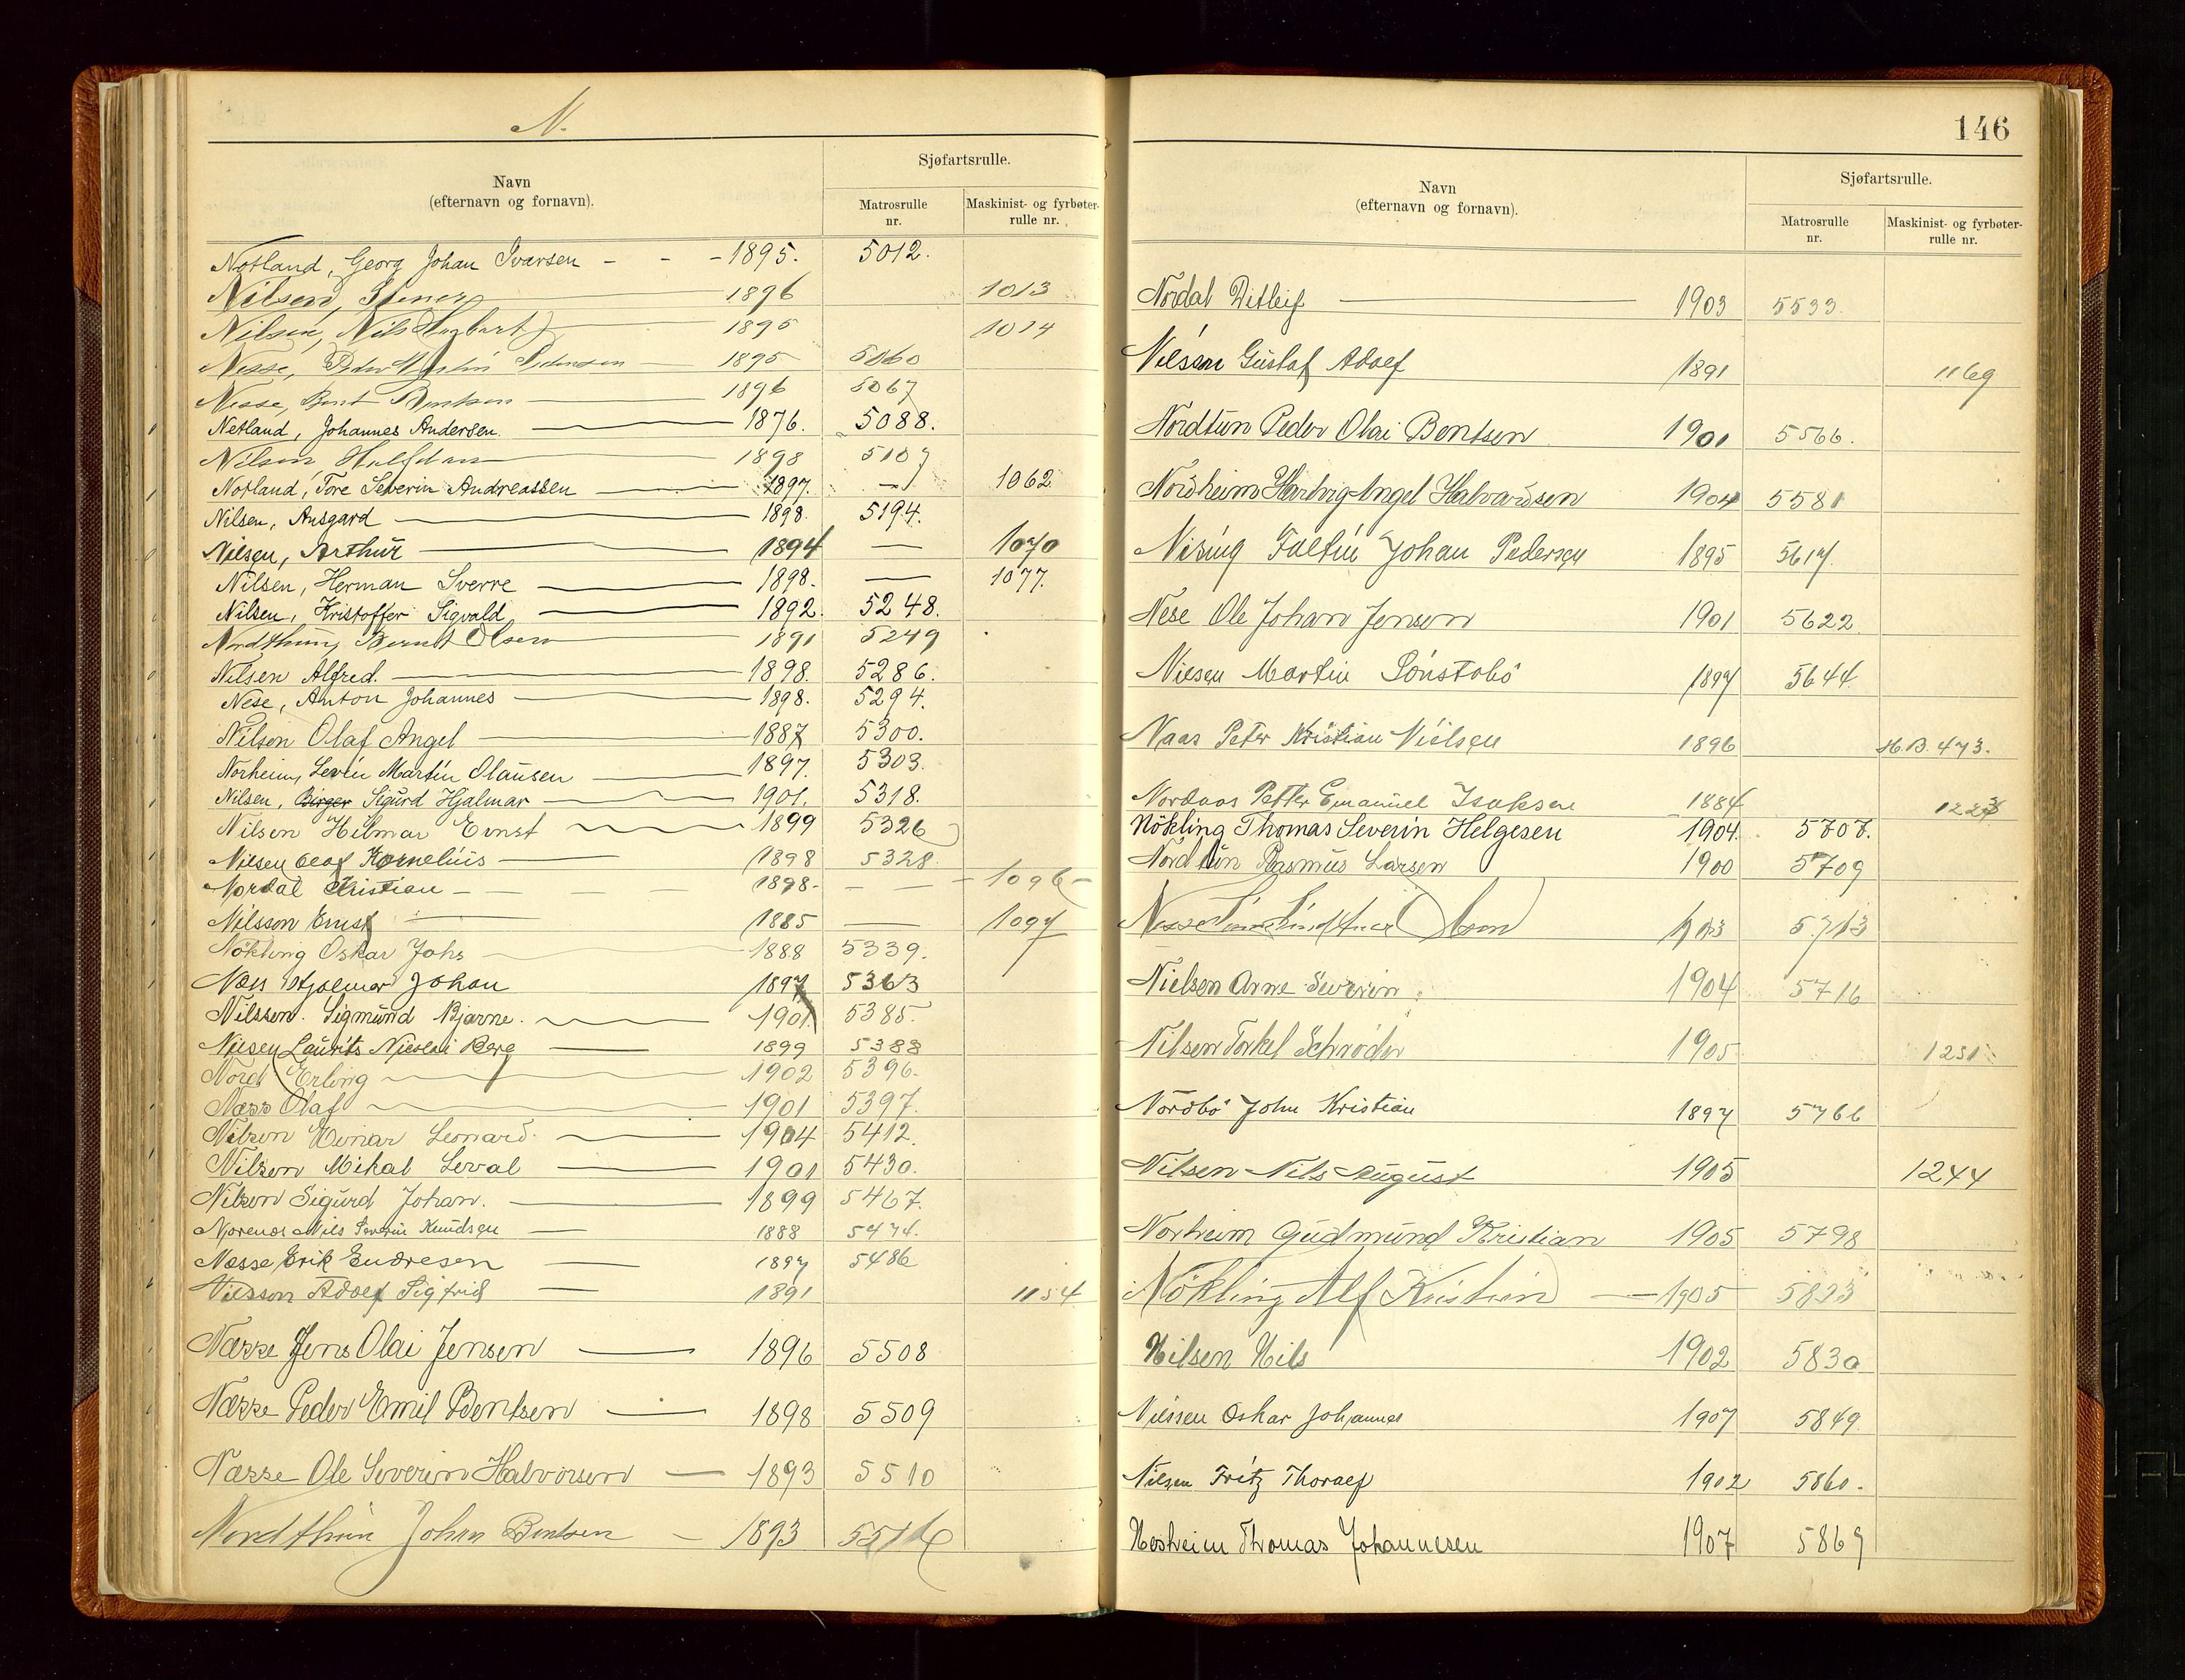 N.
Navn
(efternavn og fornavn).
Sjøfartsrulle.
Matrosrulle
nr.
Maskinist- og fyrbøter-
rulle nr.
Notland, Georg Johan Ivarsen - - - 1895. 5012.
Nilsen, 1896 1013
Nilsen, Nils 1895 1014
Nesse, Peder Pedersen 1895 5060
Nesse, Bent Bentsen 1896 5067
Netland, Johannes Andersen. 1876. 5088.
Nilsen Halfdan 1898 5107
Notland, Tore Severin Andreassen 1897. 1062
Nilsen, Ansgard 1898. 5194.
Nilsen, Arthur 1894 — 1070
Nilsen, Herman Sverre 1898. — 1077.
Nilsen, Kristoffer Sigvald 1892. 5248.
Nordthun, Bernt Olsen 1891 5249
Nilsen Alfred. 1898. 5286.
Nese, Anton Johannes 1898. 5294.
Nilsen Olaf Angel 1887 5300.
Norheim, Sevin Martin Olausen 1897. 5303.
Nilsen, Birger Sigurd Hjalmar 1901. 5318.
Nilsen Hilmar Ernst 1899 5326
Nilsen Olaf Kornelius 1898 5328.
Nordal Kristian 1898- — — 1096
Nilsson Ernst 1885 — 1097
Nökling Oskar Johs 1888 5339.
Næss Hjalmar Johan 1897 5363
Nilssen. Sigmund Bjarne. 1901. 5385.
Nilsen Laurits Nicolai Berg 1899 5388
Nord Erling 1902 5396.
Næss Olaf 1901 5397.
Nilsen Leonard. 1904 5412.
Nilsen Mikal Serval 1901 5430.
Nilsen Sigurd Johan. 1899 5467.
Nils Severin Knudsen 1888 5474.
Næsse Erik Endresen 1897 5486
Nilsson Adolf Sigfrid 1891 1154
Næsse Jens Olai Jensen 1896 5508
Næsse Peder Emil Bentsen 1898 5509
Næsse Ole Severin Halvorsen 1893 5510
Nordthun Johan Bentsen 1893 5516
146
Navn
(efternavn og fornavn).
Sjøfartsrulle.
Matrosrulle
nr.
Maskinist- og fyrbøter-
rulle nr.
Nordal Ditleif 1903 5533.
Nilsson Gustaf Adolf 1891 1169
Nordtun Peder Olai Bentsen 1901 5566.
Nordheim Hartvig Angel Halvardsen 1904 5581
Johan Pedersen 1895 5617.
Nese Ole Johan Jensen 1901 5622
Nilsen Martin Sönstabö 1897 5644.
Naas Peter Kristian Nielsen 1896 H.B. 473.
Nordaas Petter Emanuel Isaksen 1884
Nökling Thomas Severin Helgesen 1904. 5707.
Nordtun Rasmus Larsen 1900 5709
5713
Nielsen Arne Severin 1904 5716
Nilsen Torkel Schröder 1905 1231
Nordbö John Kristian 1897 5766
Nilsen Nils August 1905 1244
Norheim Gudmund Kristian 1905 5798
Nökling Alf Kristian 1905 5823
Nilsen Nils 1902 5830
Nilssen Oskar Johannes 1907 5849.
Nilsen Fritz Thoralf 1902 5860.
Nesheim Thomas Johannesen 1907 5869